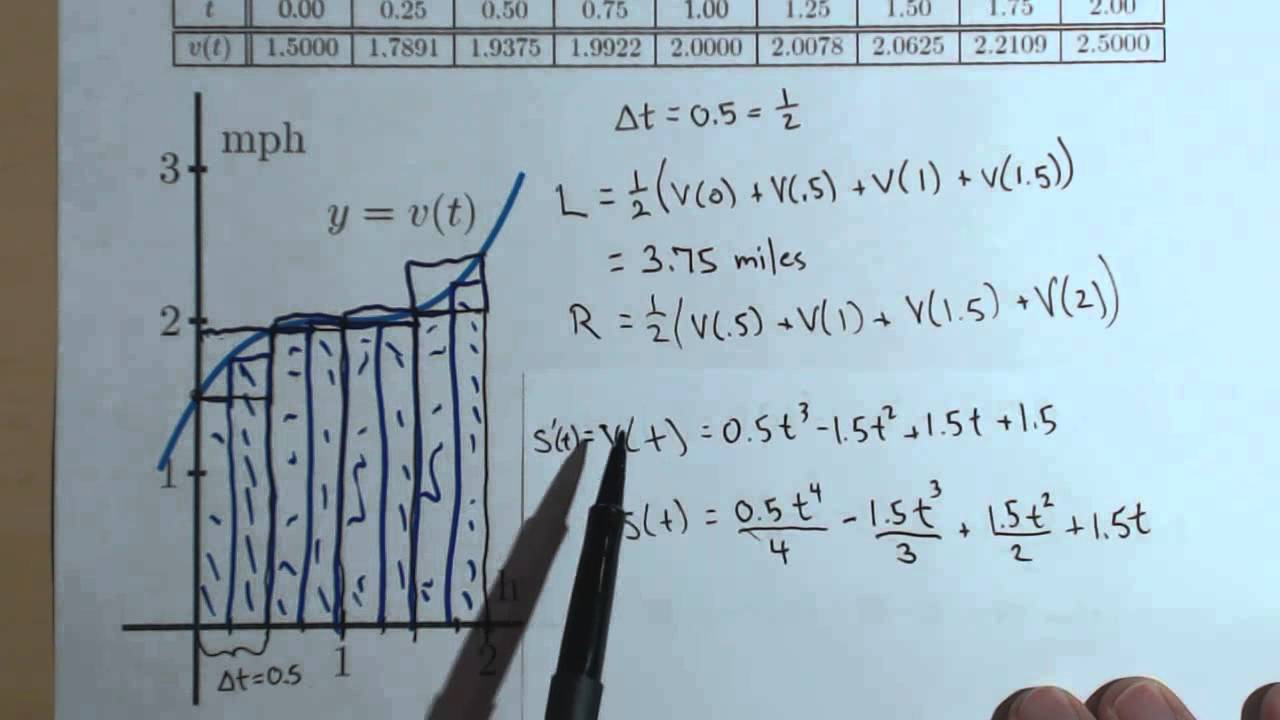 t 0.00 0.25 0.50 0.75 1.00 1.25 1.50 1.75 2.00
v(t) 1.5000 1.7891 1.9375 1.9922 2.0000 2.0078 2.0625 2.2109 2.5000
mph
3
y = v(t)
2
1
h
1
2
Δt=0.5
Δt = 0.5 = 1/2
L = 1/2 (V(0) + V(.5) + V(1) + V(1.5))
= 3.75 miles
R = 1/2 (V(.5) + V(1) + V(1.5) + V(2))
s'(t) = V(t) = 0.5t³ - 1.5t² + 1.5t + 1.5
s(t) = 0.5t⁴/4 - 1.5t³/3 + 1.5t²/2 + 1.5t